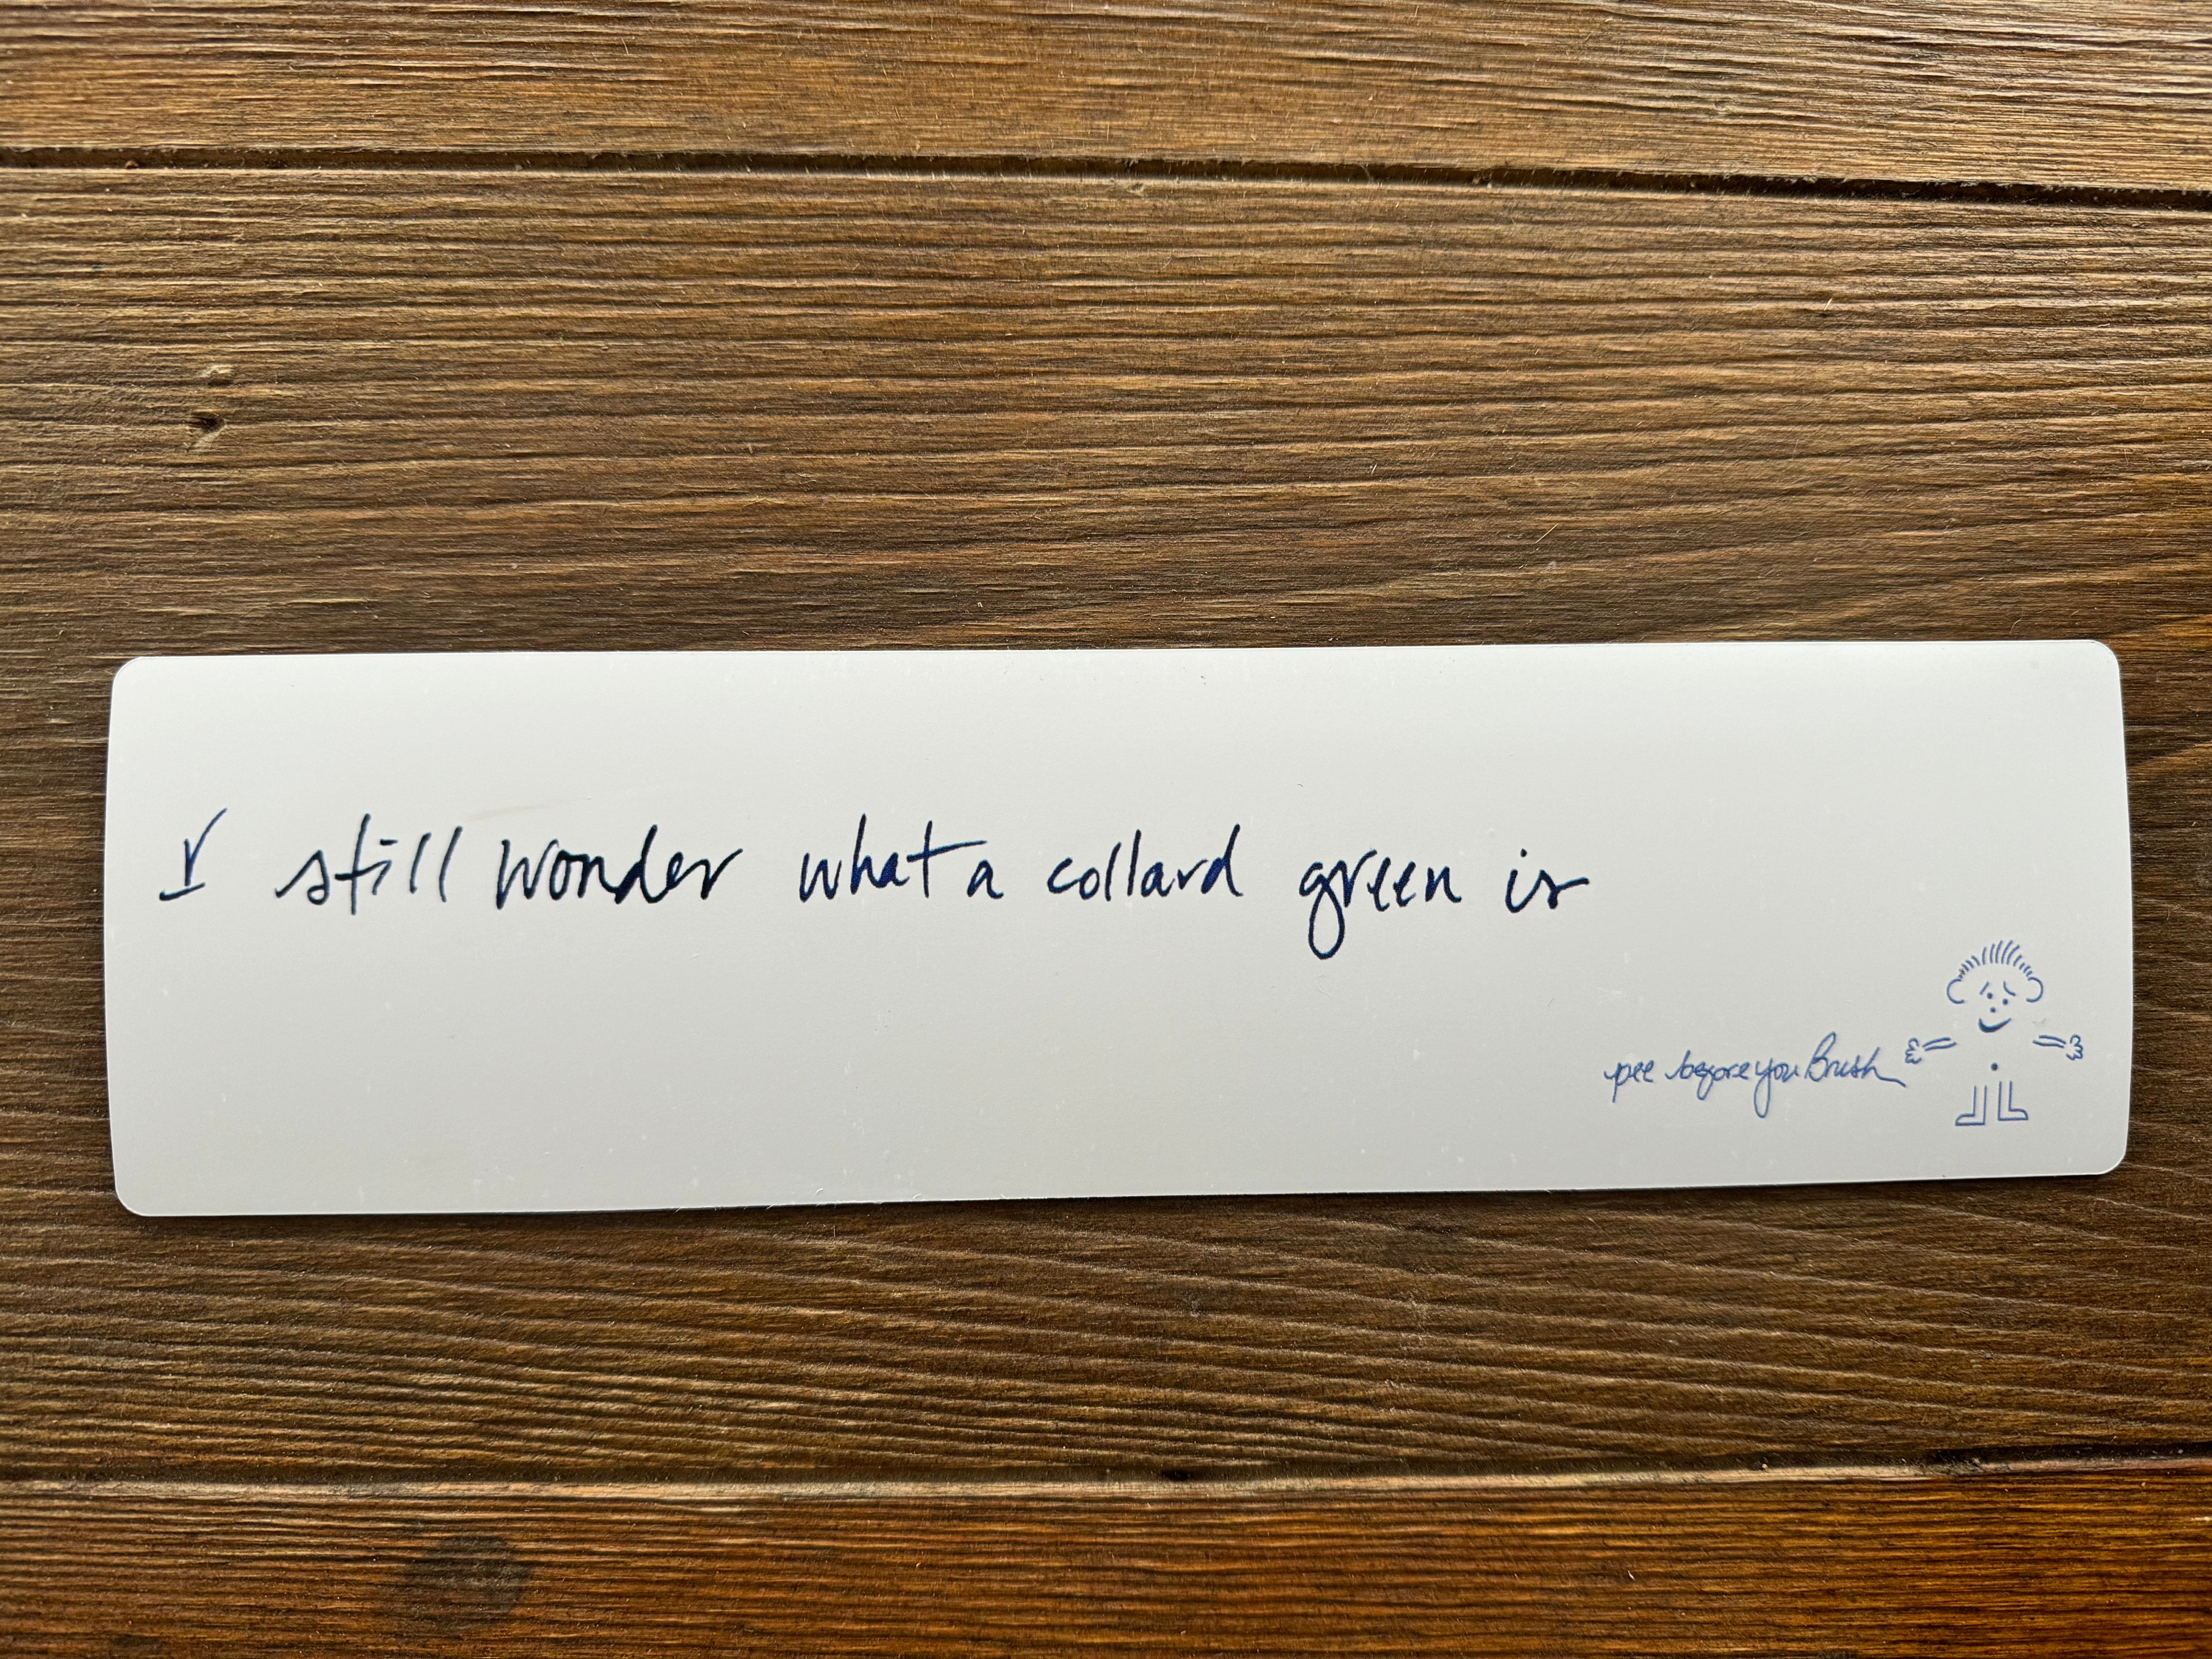 I still wonder what a collard green is
pee before you Brush